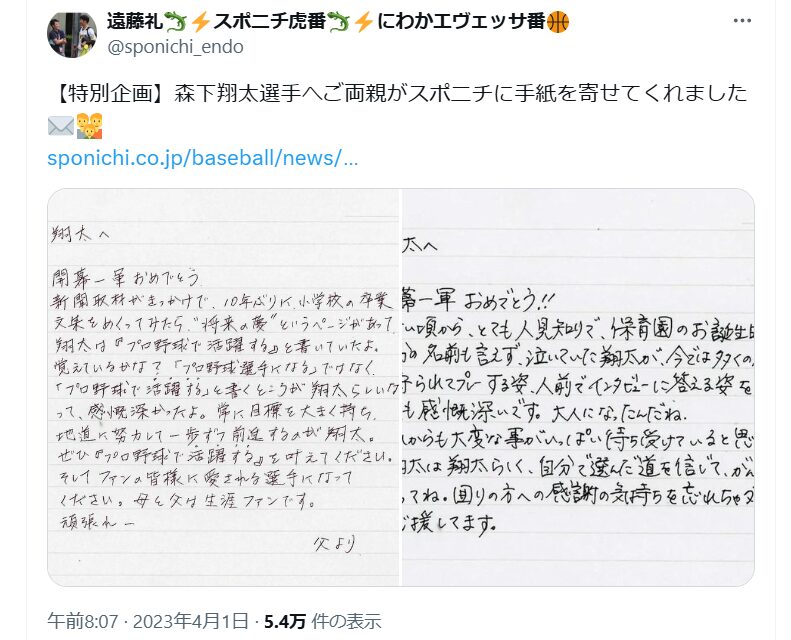 遠藤礼🦎⚡スポニチ虎番🦎⚡にわかエヴェッサ番🏀
@sponichi_endo
【特別企画】森下翔太選手へご両親がスポニチに手紙を寄せてくれました
✉️👨‍👩‍👦
sponichi.co.jp/baseball/news/…
翔太へ
開幕一軍おめでとう
新聞取材がきっかけで、10年ぶりに小学校の卒業
文集をめくってみたら、"将来の夢"というページがあって
翔太は『プロ野球で活躍する』と書いていたよ。
覚えているかな？「プロ野球選手になる」ではなく、
「プロ野球で活躍する」と書くところが翔太らしいな
って、感慨深かったよ。常に目標を大きく持ち、
地道に努力して一歩ずつ前進するのが翔太。
ぜひ『プロ野球で活躍する』を叶えてください。
そしてファンの皆様に愛される選手になって
ください。母と父は生涯ファンです。
頑張れー
父より
太へ
幕一軍おめでとう!!
い頃から、とても人見知りで、保育園のお誕生日
の名前も言えず、泣いていた翔太が、今では多くの
られてプレーする姿、人前でインタビューに答える姿を
も感慨深いです。大人になったんだね。
からも大変な事がいっぱい待ち受けていると思
太は翔太らしく、自分で選んだ道を信じて、がん
ってね。回りの方への感謝の気持ちを忘れちゃダ
援してます。
午前8:07 · 2023年4月1日 · 5.4万 件の表示